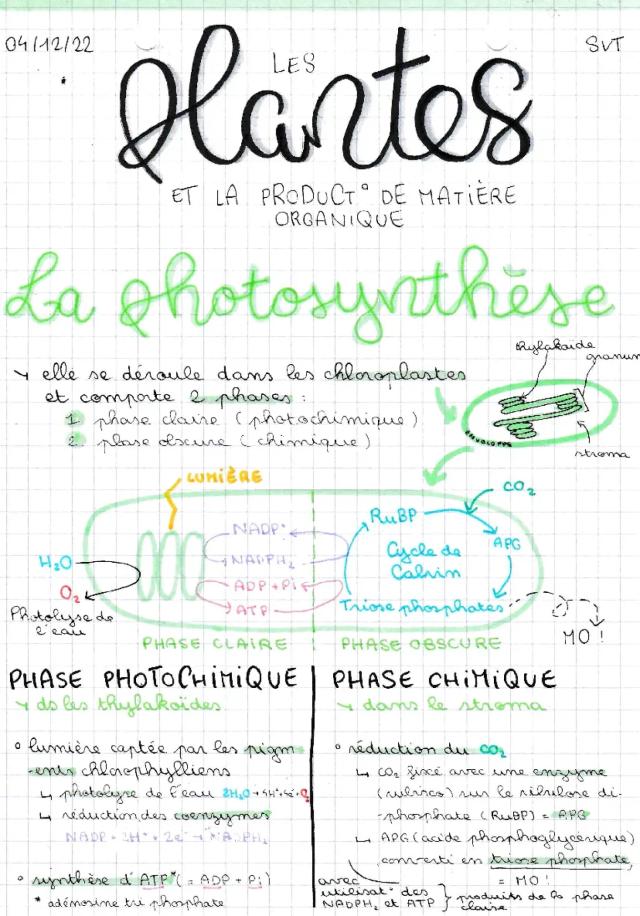 04/12/22
SVT
LES
Plantes
ET LA PRODUCT° DE MATIÈRE
ORGANIQUE
La photosynthèse
elle se déroule dans les chloroplastes
et comporte 2 phases :
1 phase claire (photochimique)
2 phase obscure (chimique)
thylakoïde
granum
enveloppe
stroma
LUMIÈRE
CO₂
NADP⁺
RuBP
NADPH₂
Cycle de
Calvin
APG
H₂O
ADP + Pi
O₂
ATP
Triose phosphates
Photolyse de
l'eau
MO !
PHASE CLAIRE
PHASE OBSCURE
PHASE PHOTOCHIMIQUE
ds les thylakoïdes
° lumière captée par les pigm
-ents chlorophylliens
↳ photolyse de l'eau 2H₂O
↳ réduction des coenzymes
° synthèse d'ATP* (= ADP + Pi)
* adénosine tri phosphate
PHASE CHIMIQUE
dans le stroma
° réduction du CO₂
↳ CO₂ fixé avec une enzyme
(rubisco) sur le ribulose di-
phosphate (RuBP) = APG
↳ APG (acide phosphoglycérique)
converti en triose phosphate
= MO !
avec
utilisat° des
NADPH₂ et ATP } produits de la phase
claire